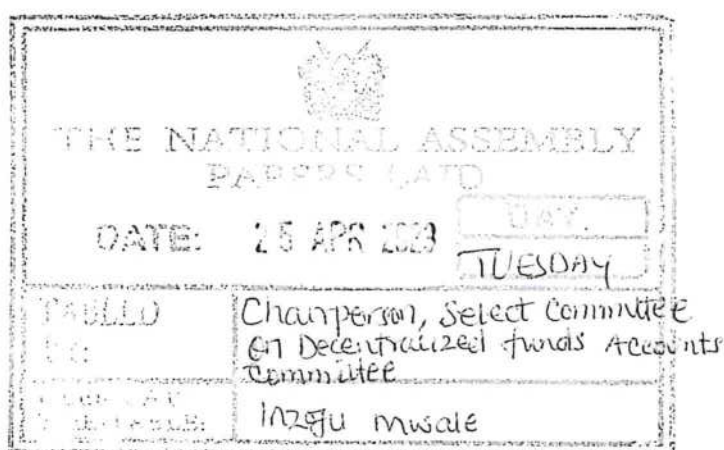 THE NATIONAL ASSEMBLY
PAPERS LAID
DATE: 25 APR 2023 DAY.
TUESDAY
TABLED Chairperson, Select Committee
BY: on Decentralized funds Accounts
Committee
CLERK-AT
THE-TABLE: Inzofu Mwale